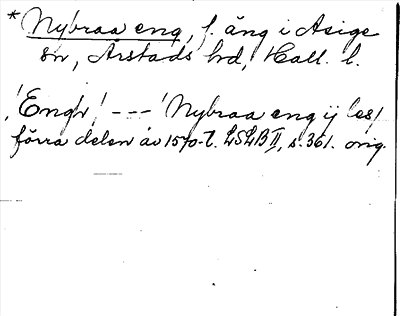 * Nybraa eng, f. äng i Asige
sn, Årstads hd, Hall. l.
'Engr' --- 'Nybraa eng ij les'
förra delen av 1570-t. LSLB II, s. 361. orig.